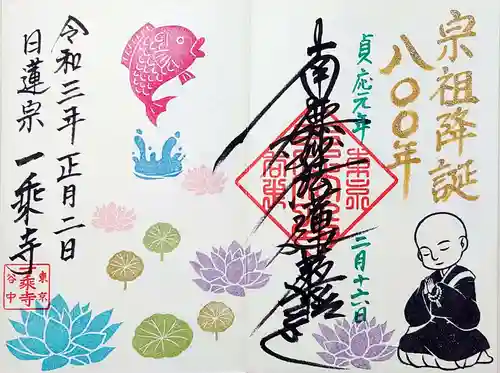 宗祖降誕
八〇〇年
貞応元年 二月十六日
南無妙法蓮華経
令和三年 正月二日
日蓮宗 一乗寺
東京
谷中
乗寺